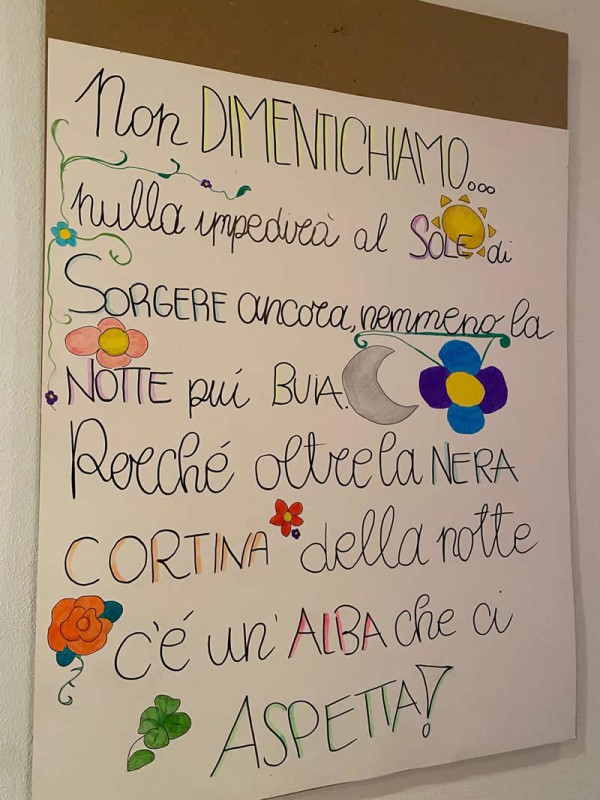 Non DIMENTICHIAMO...
nulla impedirà al SOLE di
SORGERE ancora, nemmeno la
NOTTE puí BUIA.
Perché oltre la NERA
CORTINA della notte
c'é un' ALBA che ci
ASPETTA!